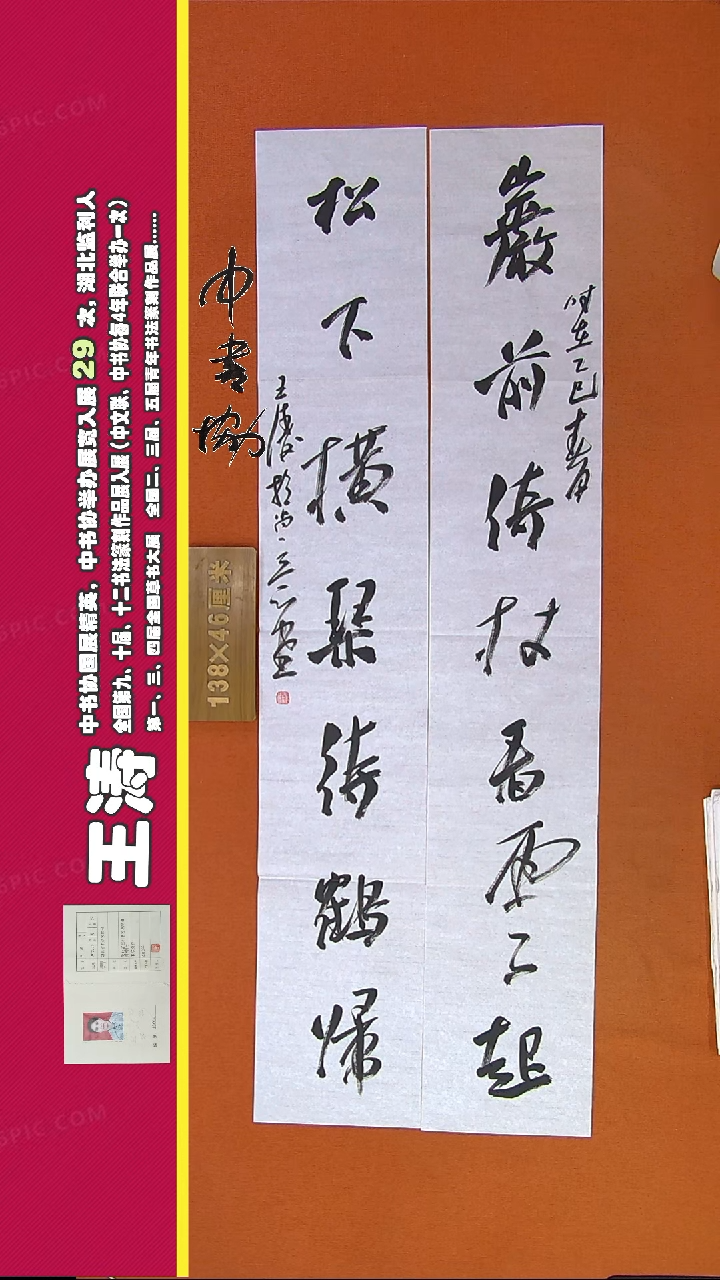 巖前倚杖看雲起
時在乙巳春月
松下橫琴待鶴歸
王濤於尚
中书协
138×46厘米
王涛
中书协国展精英，中书协举办展览入展29次，湖北监利人
全国第九、十届、十二书法篆刻作品展入展（中文联、中书协每4年联合举办一次）
第一、三、四届全国草书大展 全国二、三届、五届青年书法篆刻作品展……